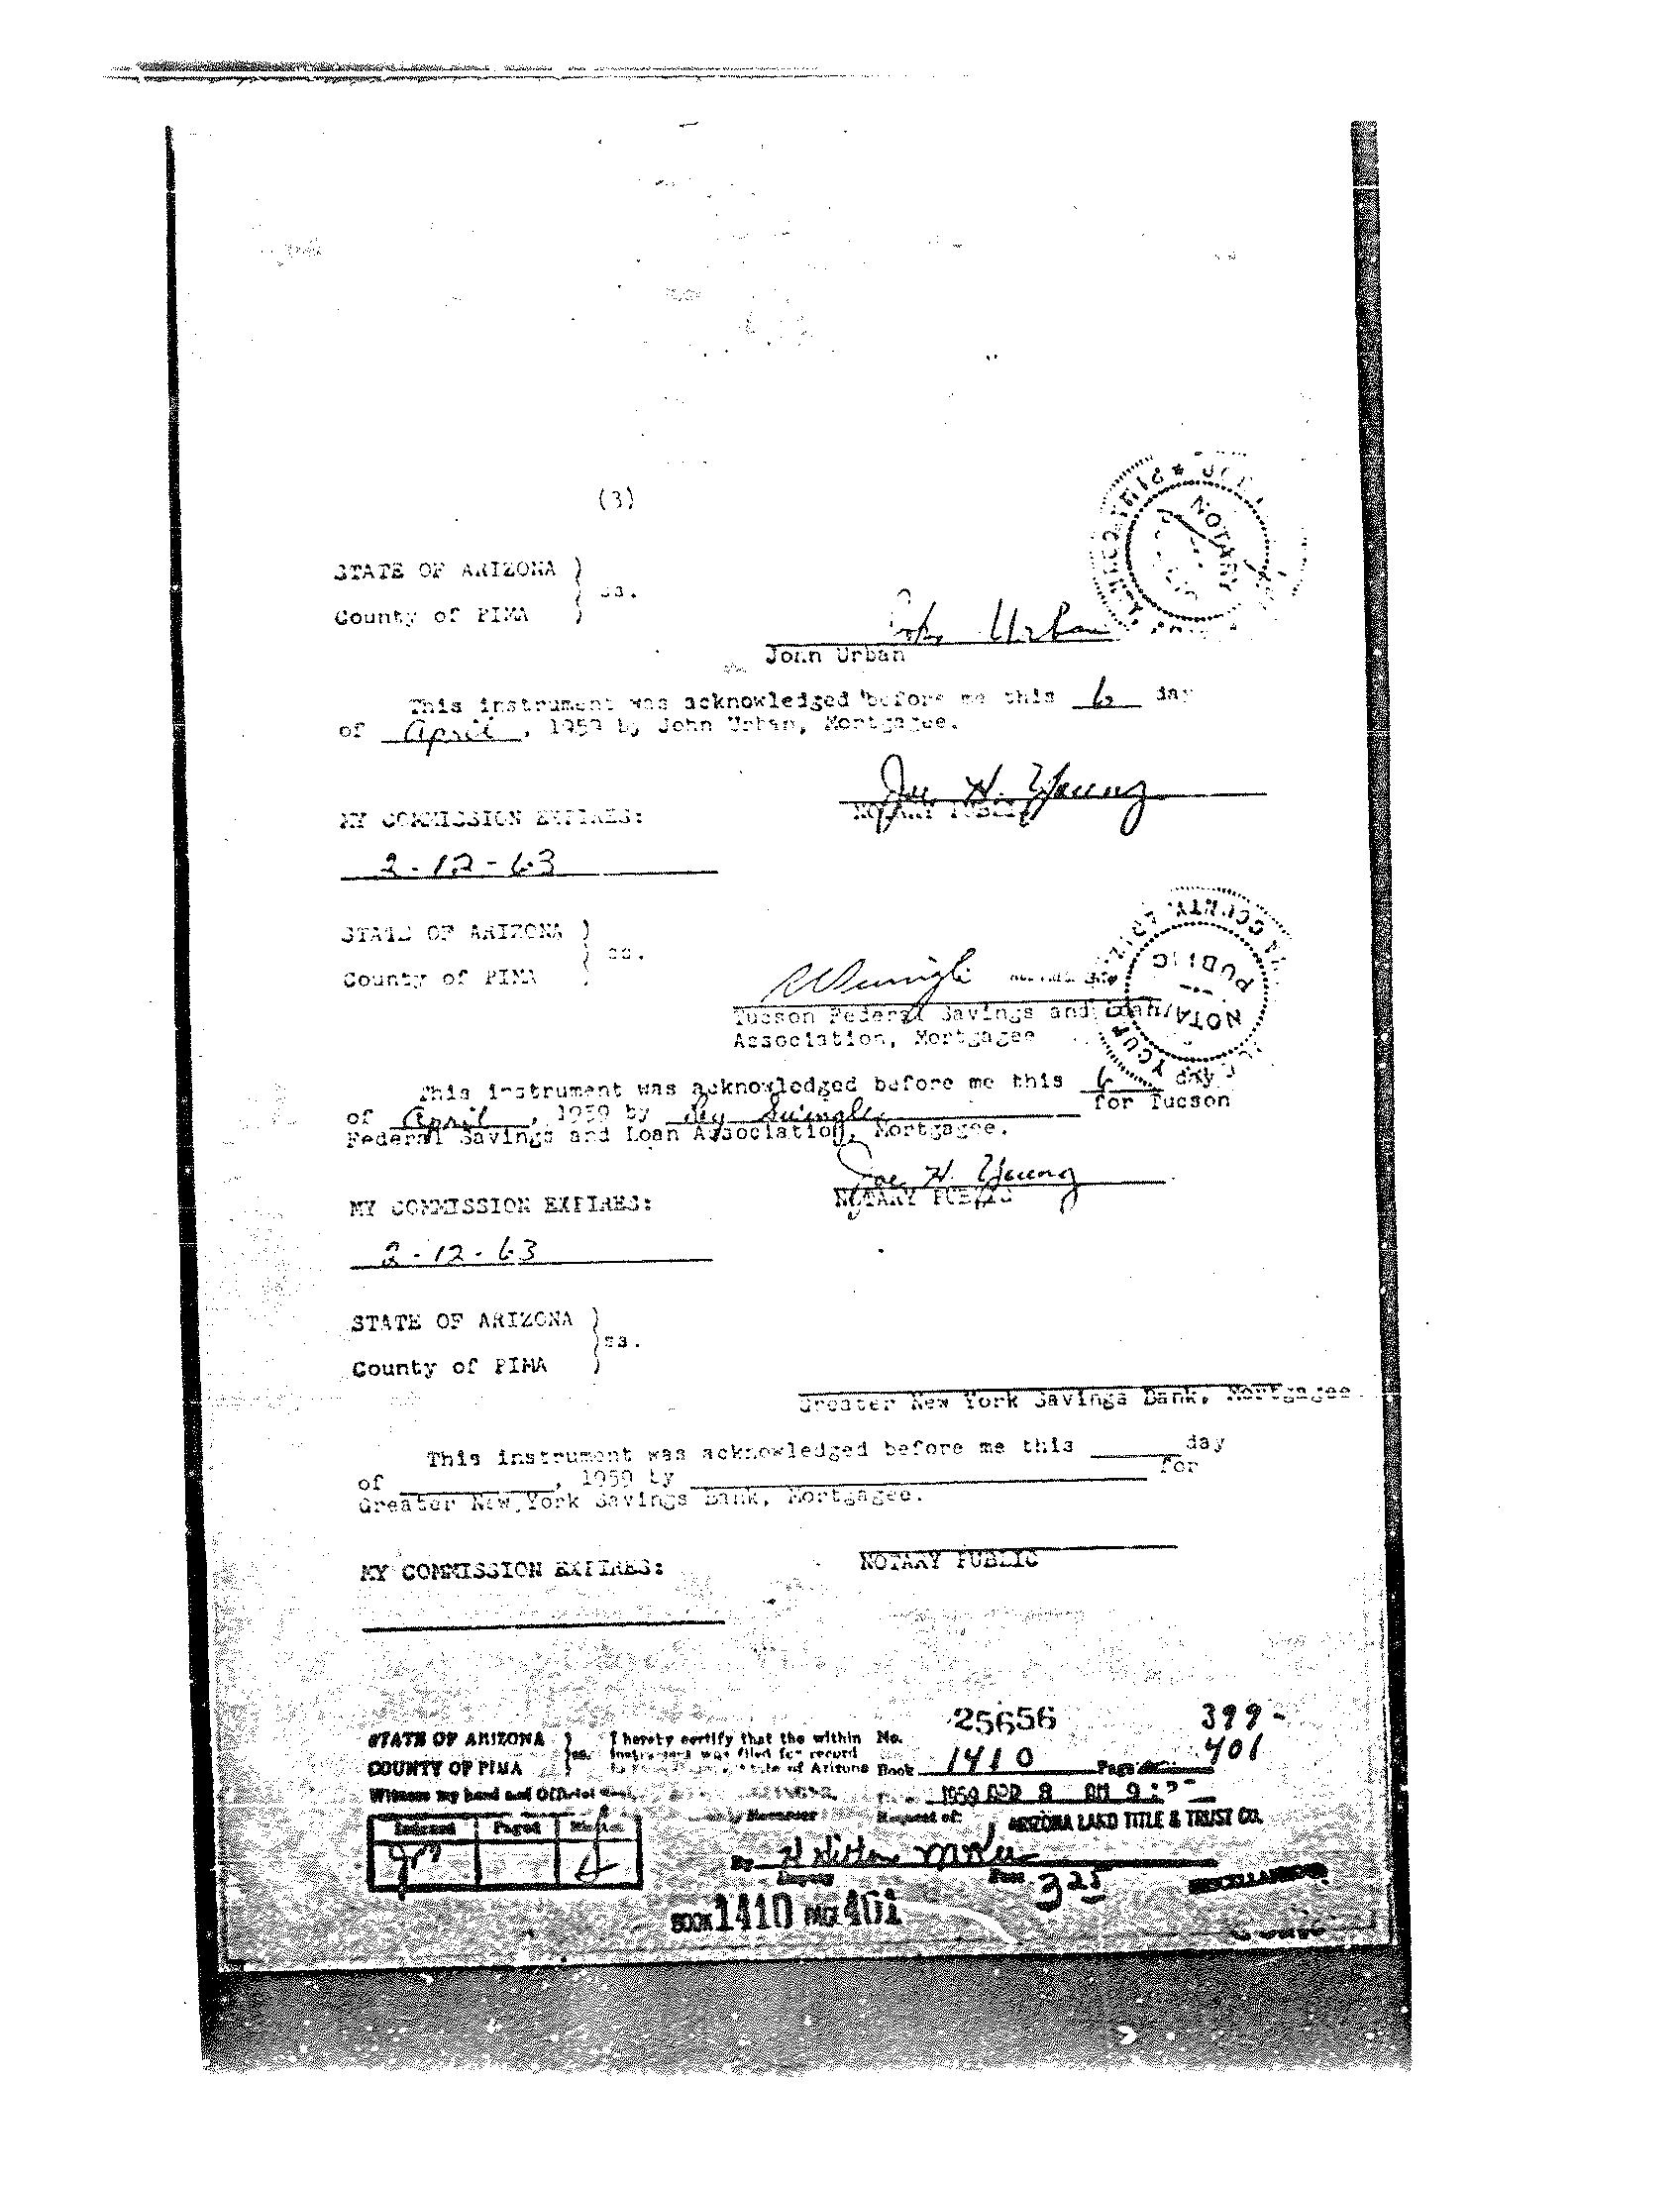 (3)
STATE OF ARIZONA
ss.
County of PIMA
John Urban
John Urban
This instrument was acknowledged before me this 6 day
of April, 1959 by John Urban, Mortgagee.
Joe H. Young
NOTARY PUBLIC
MY COMMISSION EXPIRES:
2-12-63
NOTARY
STATE OF ARIZONA
ss.
County of PIMA
Tucson Federal Savings and Loan
Association, Mortgagee
This instrument was acknowledged before me this 6 day
of April, 1959 by Swingle for Tucson
Federal Savings and Loan Association, Mortgagee.
Joe H. Young
NOTARY PUBLIC
MY COMMISSION EXPIRES:
2-12-63
COUNTY
NOTARY PUBLIC
STATE OF ARIZONA
ss.
County of PIMA
Greater New York Savings Bank, Mortgagee
This instrument was acknowledged before me this ______ day
of ______, 1959 by ______ for
Greater New York Savings Bank, Mortgagee.
NOTARY PUBLIC
MY COMMISSION EXPIRES:
STATE OF ARIZONA
COUNTY OF PIMA
ss.
I hereby certify that the within
instrument was filed for record
State of Arizona
No. 25656
399-
401
Book 1410 Page
Witness my hand and Official
1959 APR 8 AM 9:
Recorder
Request of: ARIZONA LAND TITLE & TRUST CO.
Indexed Paged
By
Deputy
Fees 3 25
MISCELLANEOUS
BOOK 1410 PAGE 401